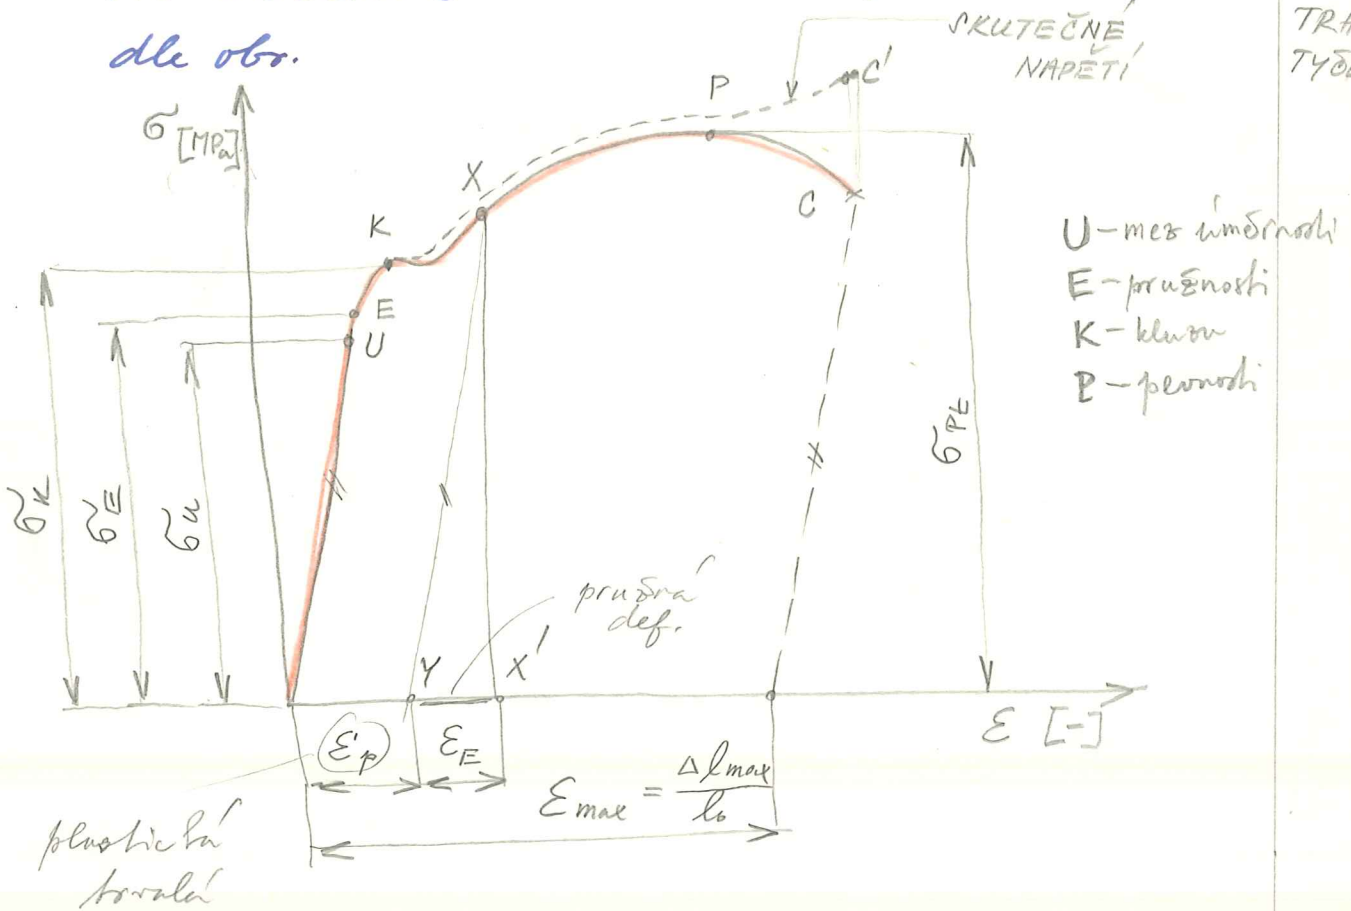 dle obr.
SKUTEČNÉ
NAPĚTÍ
σ [MPa]
P
C'
X
K
C
E
U
U - mez úměrnosti
E - pružnosti
K - kluzu
P - pevnosti
σK
σE
σu
σPt
pružná
def.
Y
X'
ε [-]
εp
εE
εmax = Δlmax / l₀
plastická
trvalá